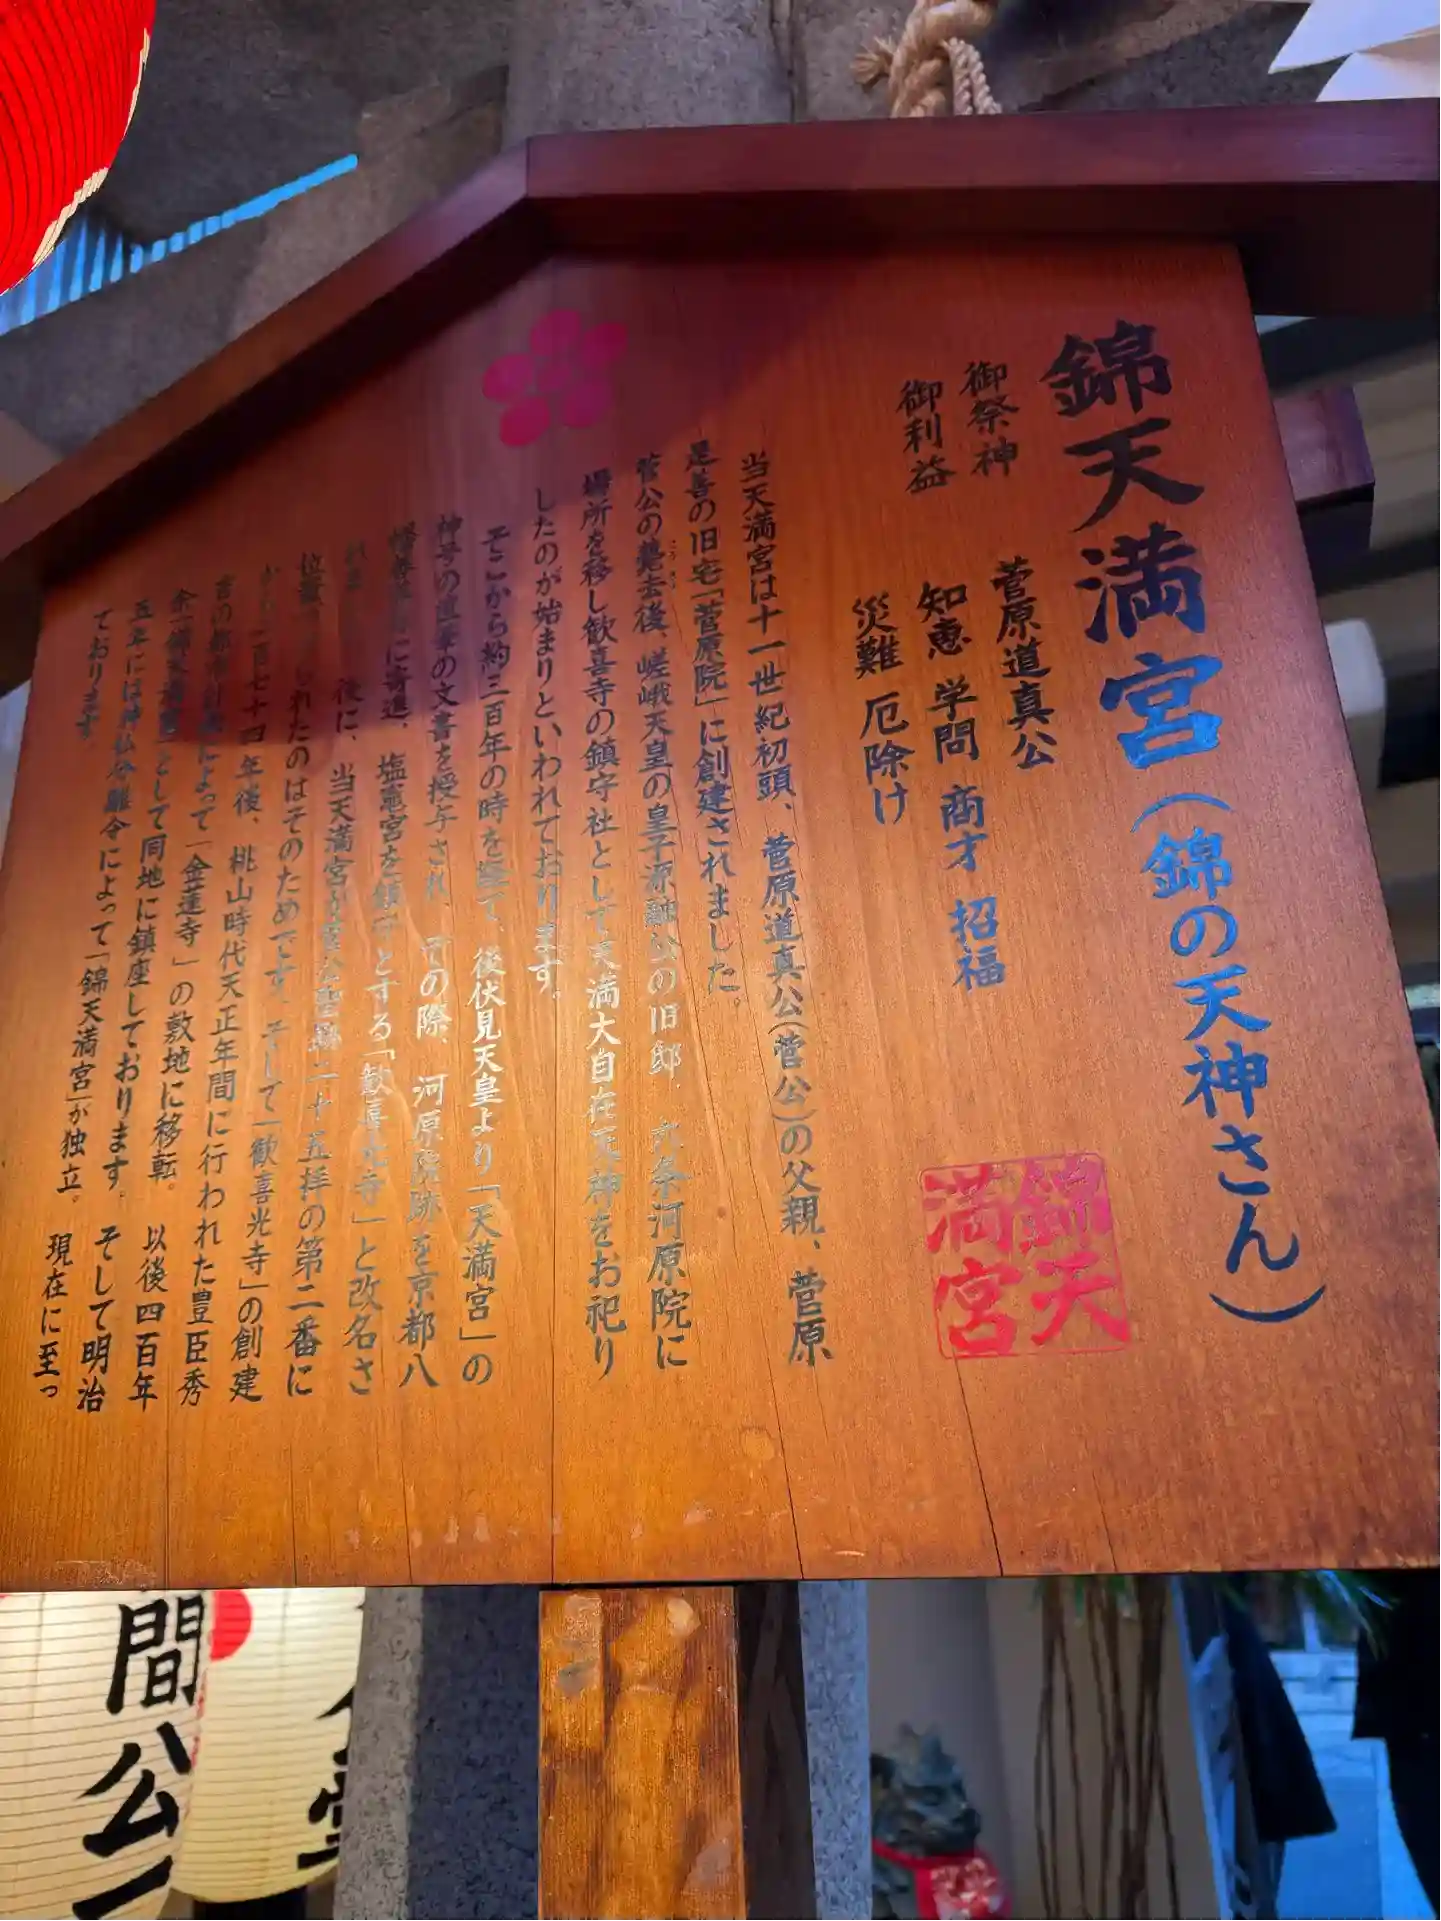 錦天満宮(錦の天神さん)
御祭神 菅原道真公
御利益 知恵 学問 商才 招福
災難 厄除け
錦天
満宮
当天満宮は十一世紀初頭、菅原道真公(菅公)の父親、菅原
是善の旧宅「菅原院」に創建されました。
菅公の薨去後、嵯峨天皇の皇子源融公の旧邸、六条河原院に
こうきょ
場所を移し歓喜寺の鎮守社として天満大自在天神をお祀り
したのが始まりといわれております。
そこから約三百年の時を経て、後伏見天皇より「天満宮」の
神号の直筆の文書を授与され その際、河原院跡を京都八
に寄進、塩竈宮を鎮守とする「歓喜光寺」と改名さ
後に、当天満宮が菅公聖跡二十五拝の第二番に
られたのはそのためです。そして「歓喜光寺」の創建
から二百七十四年後、桃山時代天正年間に行われた豊臣秀
吉の都市計画によって「金蓮寺」の敷地に移転。以後四百年
余「錦天満宮」として同地に鎮座しております。そして明治
五年には神仏分離令によって「錦天満宮」が独立。現在に至っ
ております。
間
公